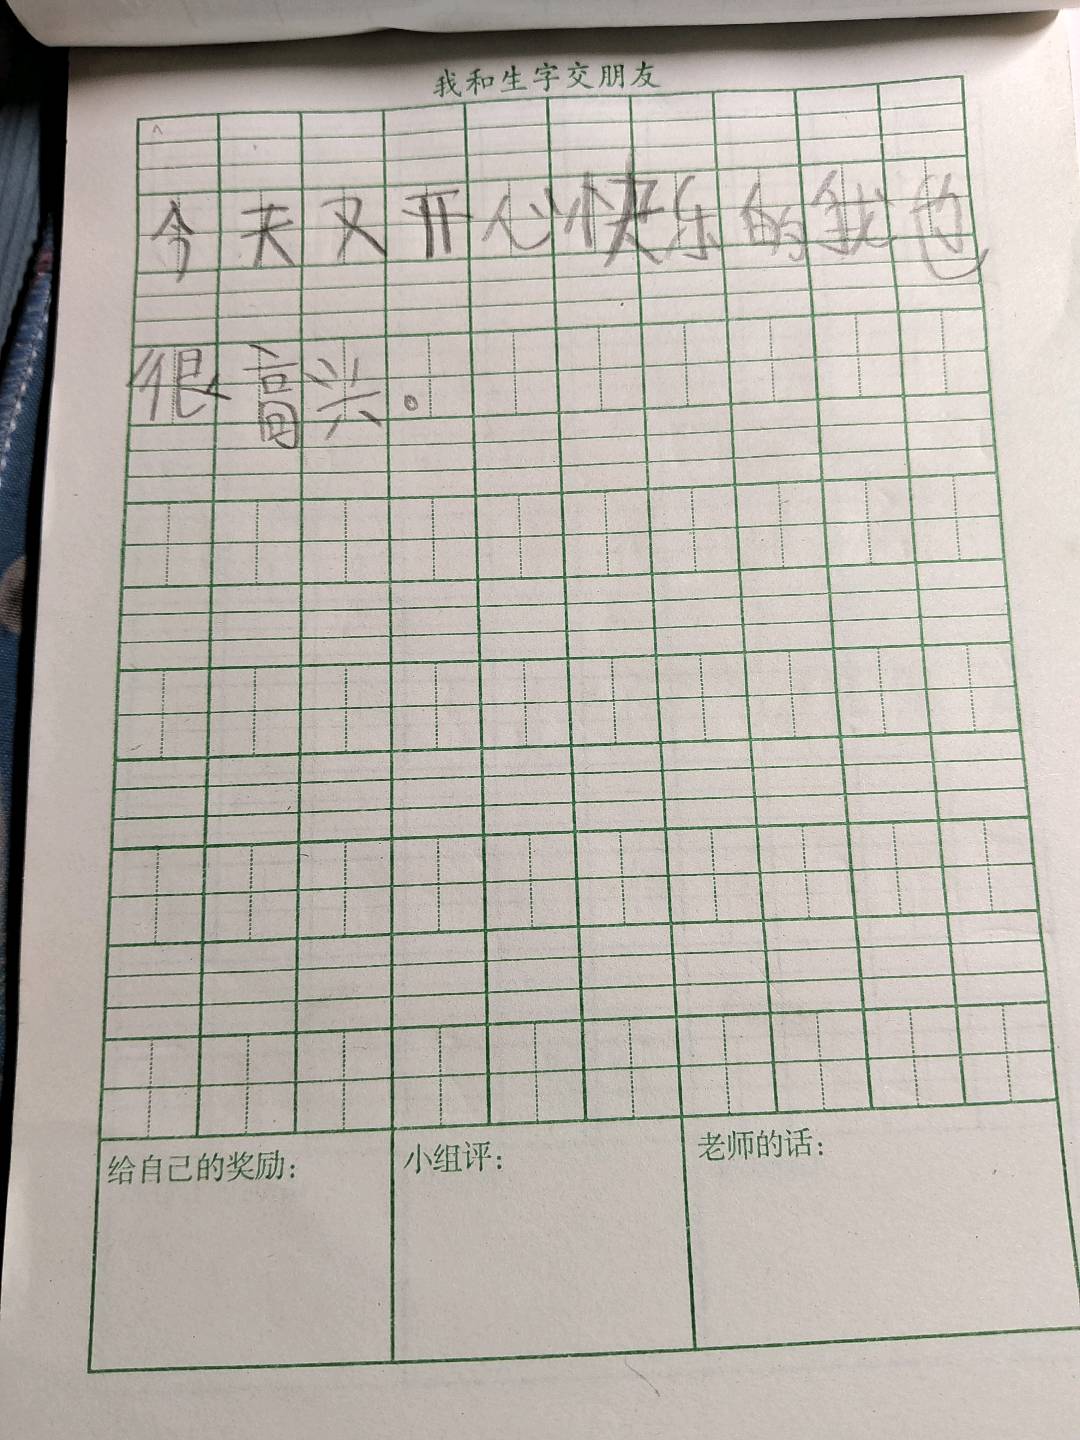 我和生字交朋友
今天又开心快乐的我也
很高兴。
给自己的奖励：
小组评：
老师的话：